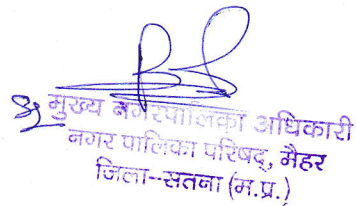 मुख्य नगरपालिका अधिकारी
नगर पालिका परिषद्, मैहर
जिला--सतना (म.प्र.)